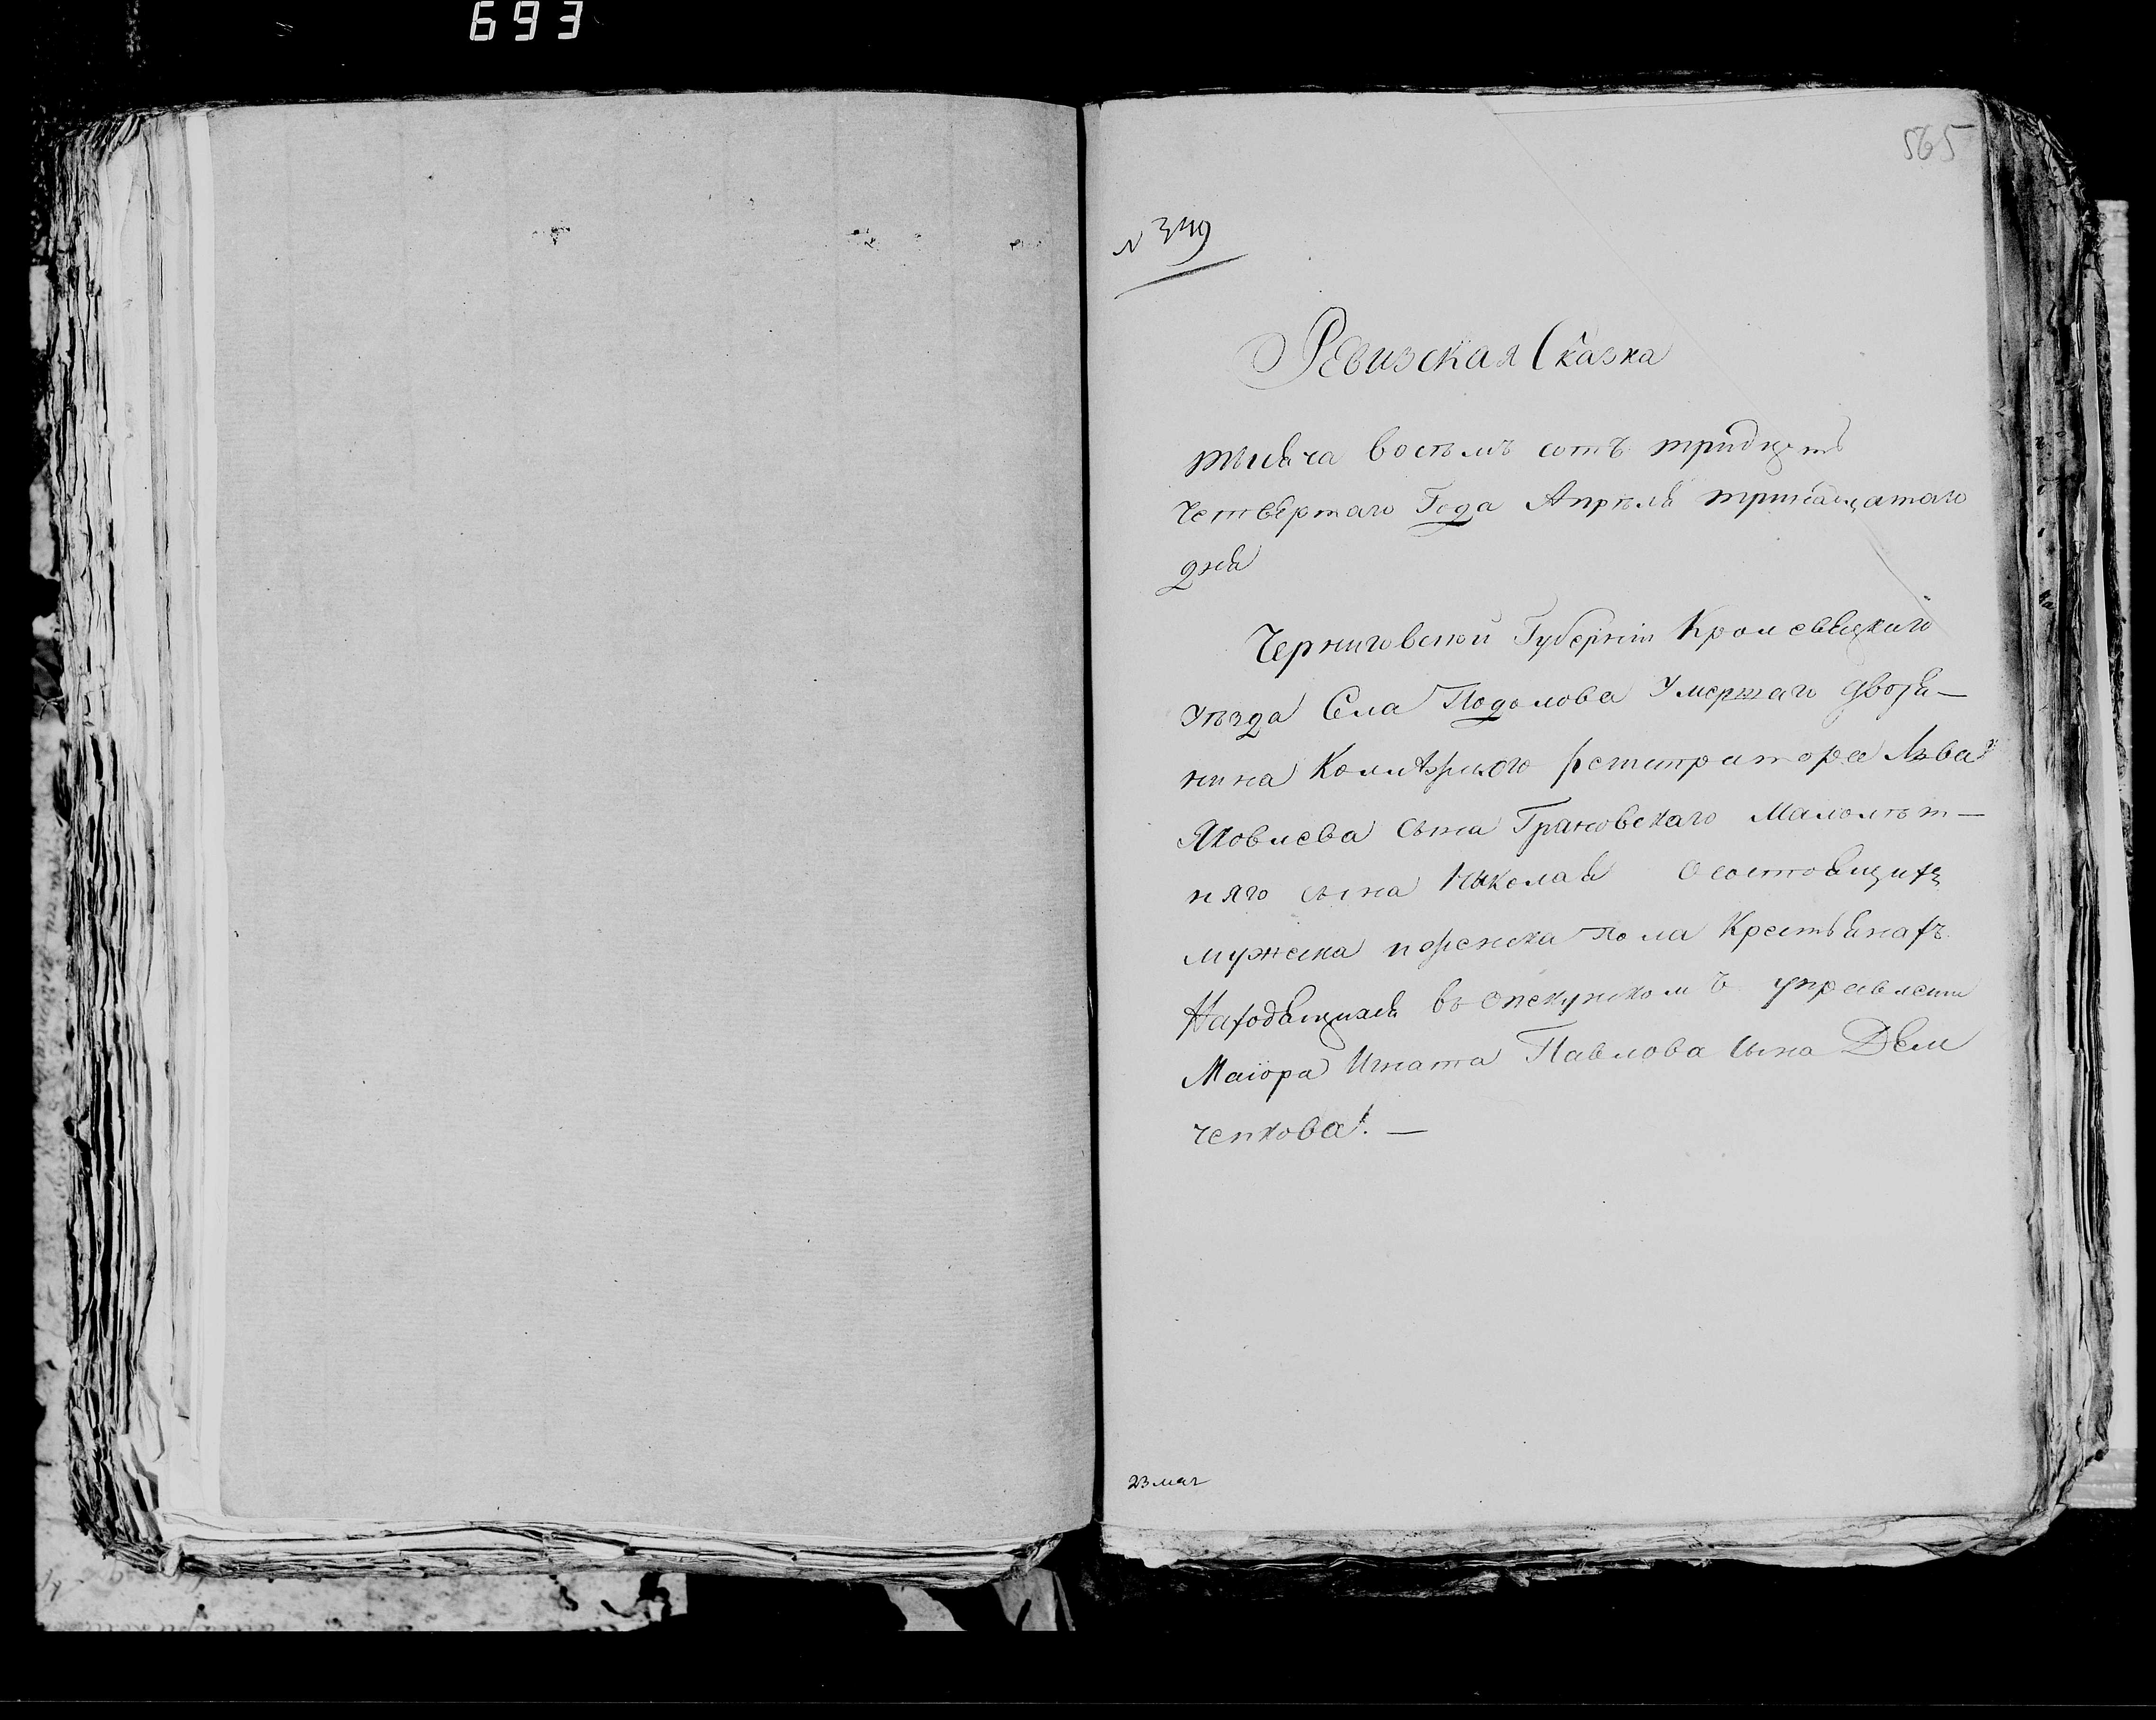 693
565
N 349
Ревизская Сказка
тысяча восемь сотъ тридцать
четвертаго Года Апрѣля тринадцатаго
дня
Черниговской Губерніи Кролевецкаго
уѣзда Села Подолова Умершаго дворя–
нина Коллѣжского регистратора Льва
Яковлева сына Грановскаго Малолѣт–
няго сына Николая О состоящихъ
мужеска и женска пола Крестьянахъ
Находящихся въ опекунскомъ управленіи
Маіора Игната Павлова сына Дем
ченкова. —